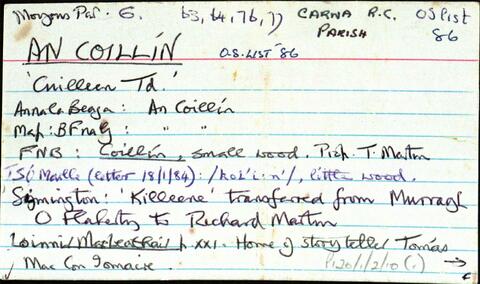 Morgans Par. 6. 63, 64, 76, 77 CARNA R.C. PARISH OS list 86
AN COILLÍN O.S. LIST '86
'Cuilleen Td.'
Annála Beaga : An Coillín
Map : BFnaG : " "
FNB : Coillín, small wood. Prop. T. Martin
TSÓ Máille (letter 18/1/84): , little wood.
Symington: 'Killeene' transferred from Murragh
O Flaherty to Richard Martin
Loinni/Mac p. xxi. Home of storyteller Tomás
Mac Con Iomaire. P120/1/2/10 (1) →